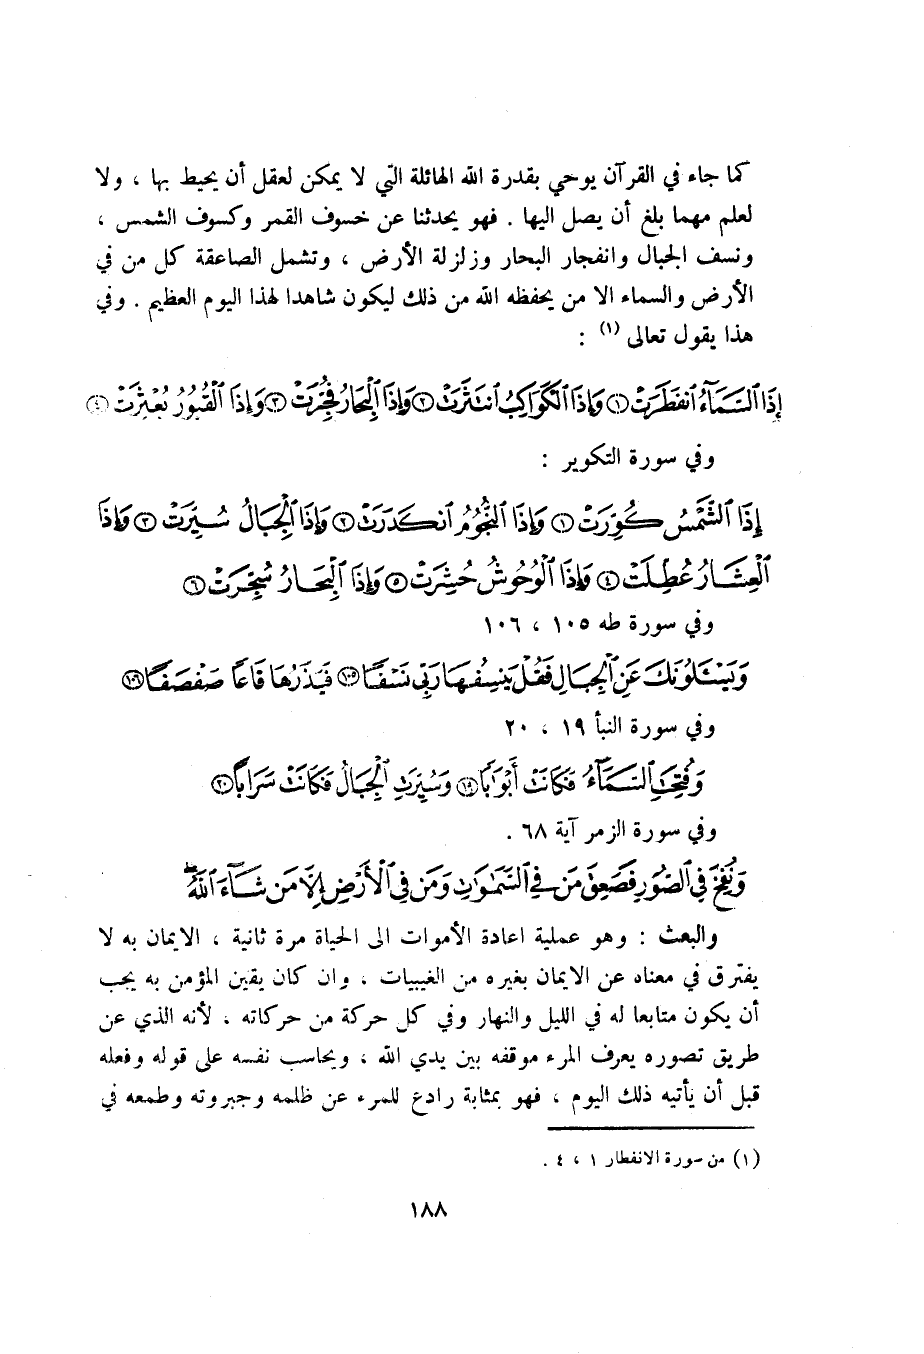 كما جاء في القرآن يوحي بقدرة الله الهائلة التي لا يمكن لعقل أن يحيط بها ، ولا
لعلم مهما بلغ أن يصل اليها . فهو يحدثنا عن خسوف القمر وكسوف الشمس ،
ونسف الجبال وانفجار البحار وزلزلة الأرض ، وتشمل الصاعقة كل من في
الأرض والسماء الا من يحفظه الله من ذلك ليكون شاهدا لهذا اليوم العظيم . وفي
هذا يقول تعالى (١) :
إِذَا ٱلسَّمَآءُ ٱنفَطَرَتْ ١ وَإِذَا ٱلْكَوَاكِبُ ٱنتَثَرَتْ ٢ وَإِذَا ٱلْبِحَارُ فُجِّرَتْ ٣ وَإِذَا ٱلْقُبُورُ بُعْثِرَتْ ٤
وفي سورة التكوير :
إِذَا ٱلشَّمْسُ كُوِّرَتْ ١ وَإِذَا ٱلنُّجُومُ ٱنكَدَرَتْ ٢ وَإِذَا ٱلْجِبَالُ سُيِّرَتْ ٣ وَإِذَا
ٱلْعِشَارُ عُطِّلَتْ ٤ وَإِذَا ٱلْوُحُوشُ حُشِرَتْ ٥ وَإِذَا ٱلْبِحَارُ سُجِّرَتْ ٦
وفي سورة طه ١٠٥ ، ١٠٦
وَيَسْـَٔلُونَكَ عَنِ ٱلْجِبَالِ فَقُلْ يَنسِفُهَا رَبِّى نَسْفًا ١٠٥ فَيَذَرُهَا قَاعًا صَفْصَفًا ١٠٦
وفي سورة النبأ ١٩ ، ٢٠
وَفُتِحَتِ ٱلسَّمَآءُ فَكَانَتْ أَبْوَٰبًا ١٩ وَسُيِّرَتِ ٱلْجِبَالُ فَكَانَتْ سَرَابًا ٢٠
وفي سورة الزمر آية ٦٨ .
وَنُفِخَ فِى ٱلصُّورِ فَصَعِقَ مَن فِى ٱلسَّمَٰوَٰتِ وَمَن فِى ٱلْأَرْضِ إِلَّا مَن شَآءَ ٱللَّهُ ۖ
والبعث : وهو عملية اعادة الأموات الى الحياة مرة ثانية ، الايمان به لا
يفترق في معناه عن الايمان بغيره من الغيبيات ، وان كان يقين المؤمن به يجب
أن يكون متابعا له في الليل والنهار وفي كل حركة من حركاته ، لأنه الذي عن
طريق تصوره يعرف المرء موقفه بين يدي الله ، ويحاسب نفسه على قوله وفعله
قبل أن يأتيه ذلك اليوم ، فهو بمثابة رادع للمرء عن ظلمه وجبروته وطمعه في
(١) من سورة الانفطار ١ ، ٤ .
١٨٨